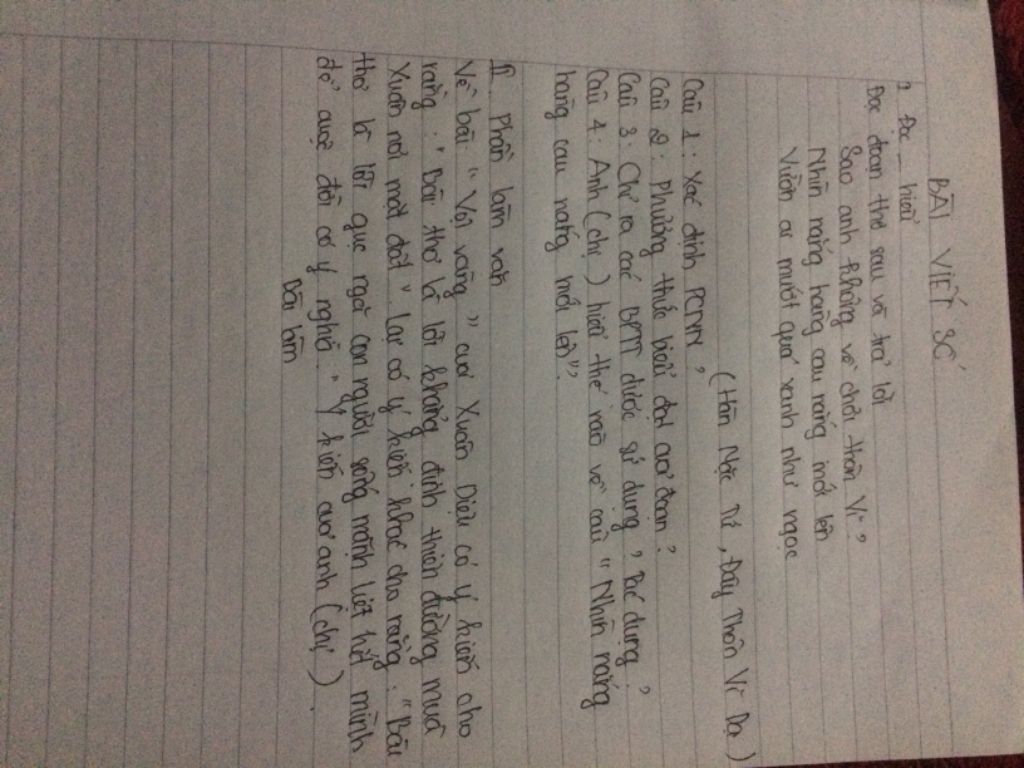 BÀI VIẾT SỐ
I. Đọc - hiểu
Đọc đoạn thơ sau và trả lời
Sao anh không về chơi thôn Vĩ?
Nhìn nắng hàng cau nắng mới lên
Vườn ai mướt quá xanh như ngọc
(Hàn Mặc Tử, Đây Thôn Vĩ Dạ)
Câu 1: Xác định PCNN?
Câu 2: Phương thức biểu đạt của đoạn?
Câu 3: Chỉ ra các BPTT được sử dụng? Tác dụng?
Câu 4: Anh (chị) hiểu thế nào về câu "Nhìn nắng
hàng cau nắng mới lên"?
II. Phần làm văn
Về bài "Vội vàng" của Xuân Diệu có ý kiến cho
rằng: "Bài thơ là lời khẳng định thiên đường mùa
Xuân nơi mặt đất". Lại có ý kiến khác cho rằng: "Bài
thơ là lời giục ngời con người sống mãnh liệt hết mình
để cuộc đời có ý nghĩa." Ý kiến của anh (chị).
Bài làm